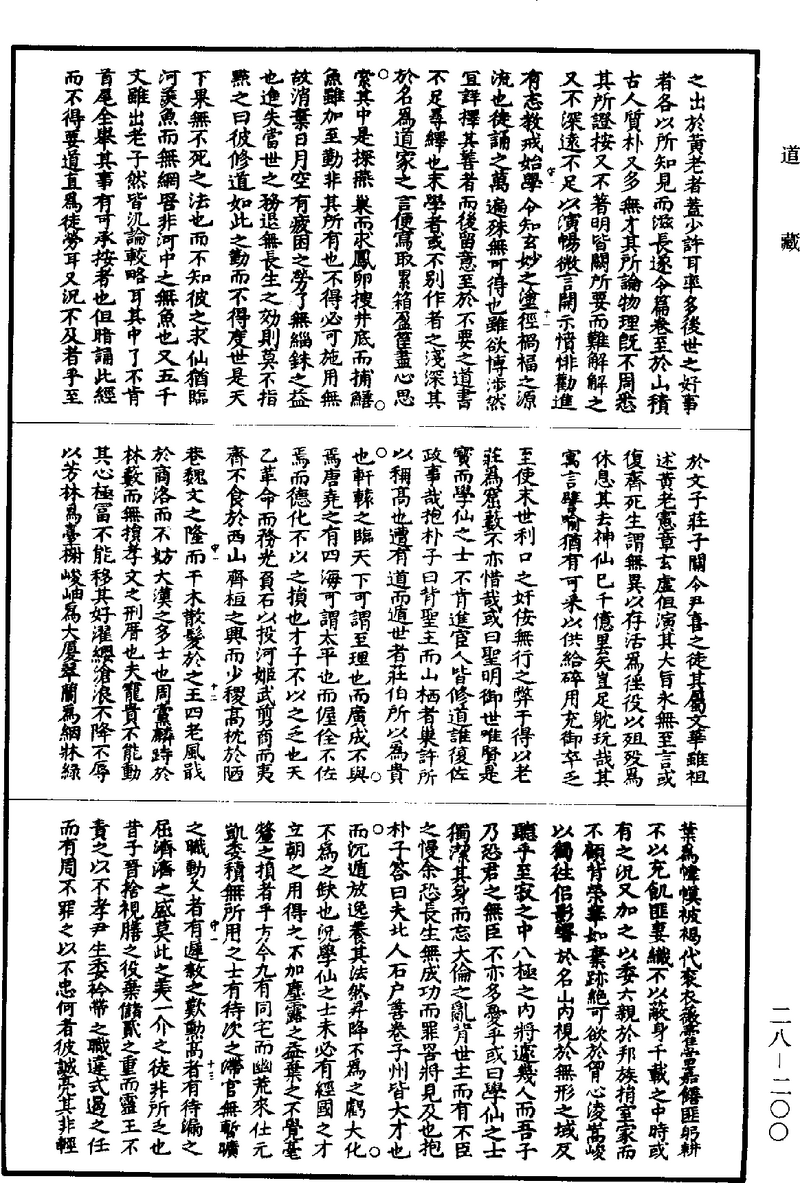 道藏
二八—二〇〇
之出於黃老者蓋少許耳率多後世之好事
者各以所知見而滋長遂令篇卷至於山積
古人質朴又多無才其所論物理既不周悉
其所證按又不著明皆闕所要而難解解之
又不深遠不足以演暢微言開示憤悱勸進
守一 十一
有志教戒始學令知玄妙之塗徑禍福之源
流也徒誦之萬遍殊無可得也雖欲博涉然
宜詳擇其善者而後留意至於不要之道書
不足尋繹也末學者或不別作者之淺深其
於名為道家之言便寫取累箱盈筐盡心思
索其中是探燕巢而求鳳卵搜井底而捕鱔
魚雖加至勤非其所有也不得必可施用無
故消棄日月空有疲困之勞了無錙銖之益
也進失當世之務退無長生之効則莫不指
點之曰彼修道如此之勤而不得度世是天
下果無不死之法也而不知彼之求仙猶臨
河羨魚而無網罟非河中之無魚也又五千
文雖出老子然皆汎論較略耳其中了不肯
首尾全舉其事有可承按者也但暗誦此經
而不得要道直為徒勞耳又況不及者乎至
於文子莊子關令尹喜之徒其屬文華雖祖
述黃老憲章玄虛但演其大旨永無至言或
復齊死生謂無異以存活為徭役以殂歿為
休息其去神仙已千億里矣豈足躭玩哉其
寓言譬喻猶有可采以供給碎用充御卒乏
至使末世利口之奸佞無行之弊于得以老
莊為窟藪不亦惜哉或曰聖明御世唯賢是
寶而學仙之士不肯進宦人皆修道誰復佐
政事哉抱朴子曰背聖主而山栖者巢許所
以稱高也遭有道而遁世者莊伯所以為貴
也軒轅之臨天下可謂至理也而廣成不與
焉唐堯之有四海可謂太平也而偓佺不佐
焉而德化不以之損也才子不以之乏也天
乙革命而務光負石以投河姬武剪商而夷
齊不食於西山齊桓之興而少稷高枕於陋
守一 十二
巷魏文之隆而干木散髮於之王四老風戢
於商洛而不妨大漢之多士也周黨麟跱於
林藪而無損孝文之刑厝也夫寵貴不能動
其心極富不能移其好濯纓滄浪不降不辱
以芳林為臺榭峻岫為大厦翠蘭為絪牀綠
葉為幃幙被褐代袞衣薇藿當嘉饍匪躬耕
不以充飢匪妻織不以蔽身千載之中時或
有之況又加之以委六親於邦族捐室家而
不顧背榮華如棄跡絕可欲於胷心淩嵩峻
以獨往侶影響於名山內視於無形之域反
聽乎至寂之中八極之內將遽幾人而吾子
乃恐君之無臣不亦多憂乎或曰學仙之士
獨潔其身而忘大倫之亂背世主而有不臣
之慢余恐長生無成功而罪罟將見及也抱
朴子答曰夫北人石戶善卷子州皆大才也
而沉遁放逸養其法然昇降不為之虧大化
不為之缺也況學仙之士未必有經國之才
立朝之用得之不加塵露之益棄之不覺毫
釐之損者乎方今九有同宅而幽荒來仕元
凱委積無所用之士有待次之滯官無暫曠
守一 十三
之職勤久者有遲敘之歎勳高者有待漏之
屈濟濟之盛莫此之美一介之徒非所乏也
昔子晉捨視膳之役棄儲貳之重而靈王不
責之以不孝尹生委衿帶之職違式遏之任
而有周不罪之以不忠何者彼誠亮其非輕